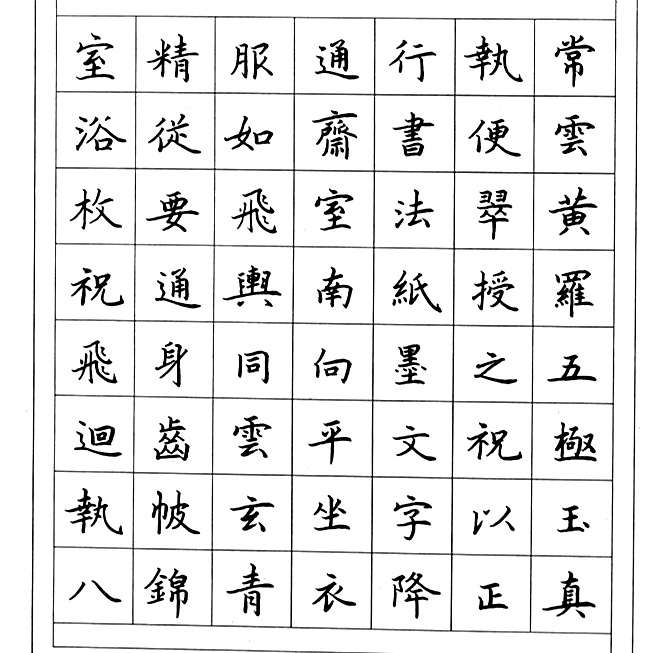 常雲黄羅五極玉真
執便翠授之祝以正
行書法紙墨文字降
通齋室南向平坐衣
服如飛輿同雲玄青
精從要通身齒帔錦
室浴枚祝飛迴執八